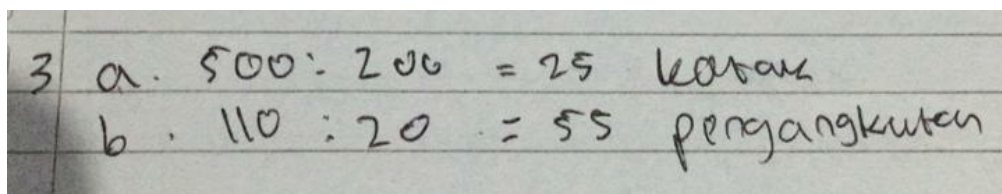 3 a. 500 : 200 = 25 kotak
b. 110 : 20 = 55 pengangkutan